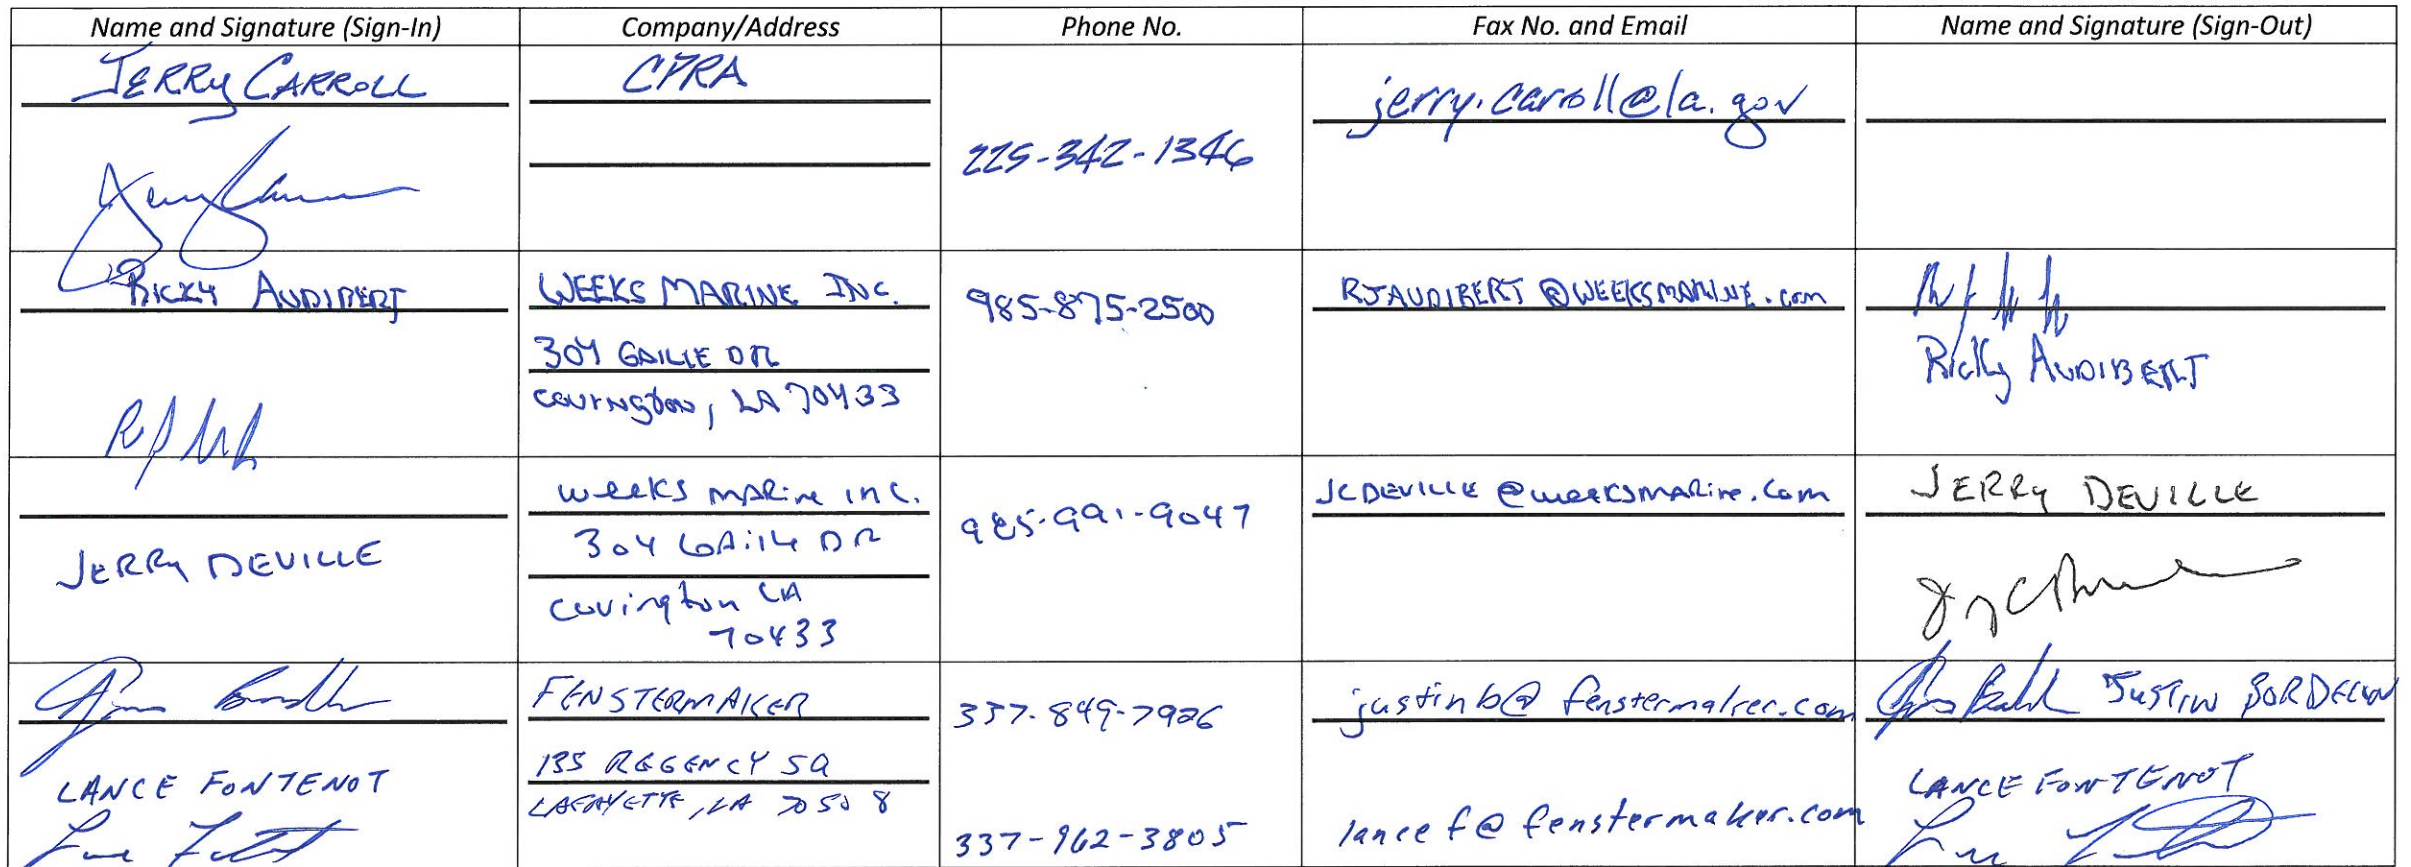 Name and Signature (Sign-In) Company/Address Phone No. Fax No. and Email Name and Signature (Sign-Out)
JERRY CARROLL
CPRA
225-342-1346
jerry.carroll@la.gov
RICKY AUDIBERT
WEEKS MARINE INC.
304 GAILLE DR
Covington, LA 70433
985-875-2500
RJAUDIBERT@WEEKSMARINE.com
Ricky AUDIBERT
JERRY DEVILLE
weeks marine inc.
304 GAille DR
Covington LA
70433
985-991-9047
JCDEVILLE@weeksmarine.com
JERRY DEVILLE
FENSTERMAKER
135 REGENCY SQ
LAFAYETTE, LA 70508
337-849-7926
justinb@fenstermaker.com
JUSTIN BORDELON
LANCE FONTENOT
337-962-3805
lancef@fenstermaker.com
LANCE FONTENOT